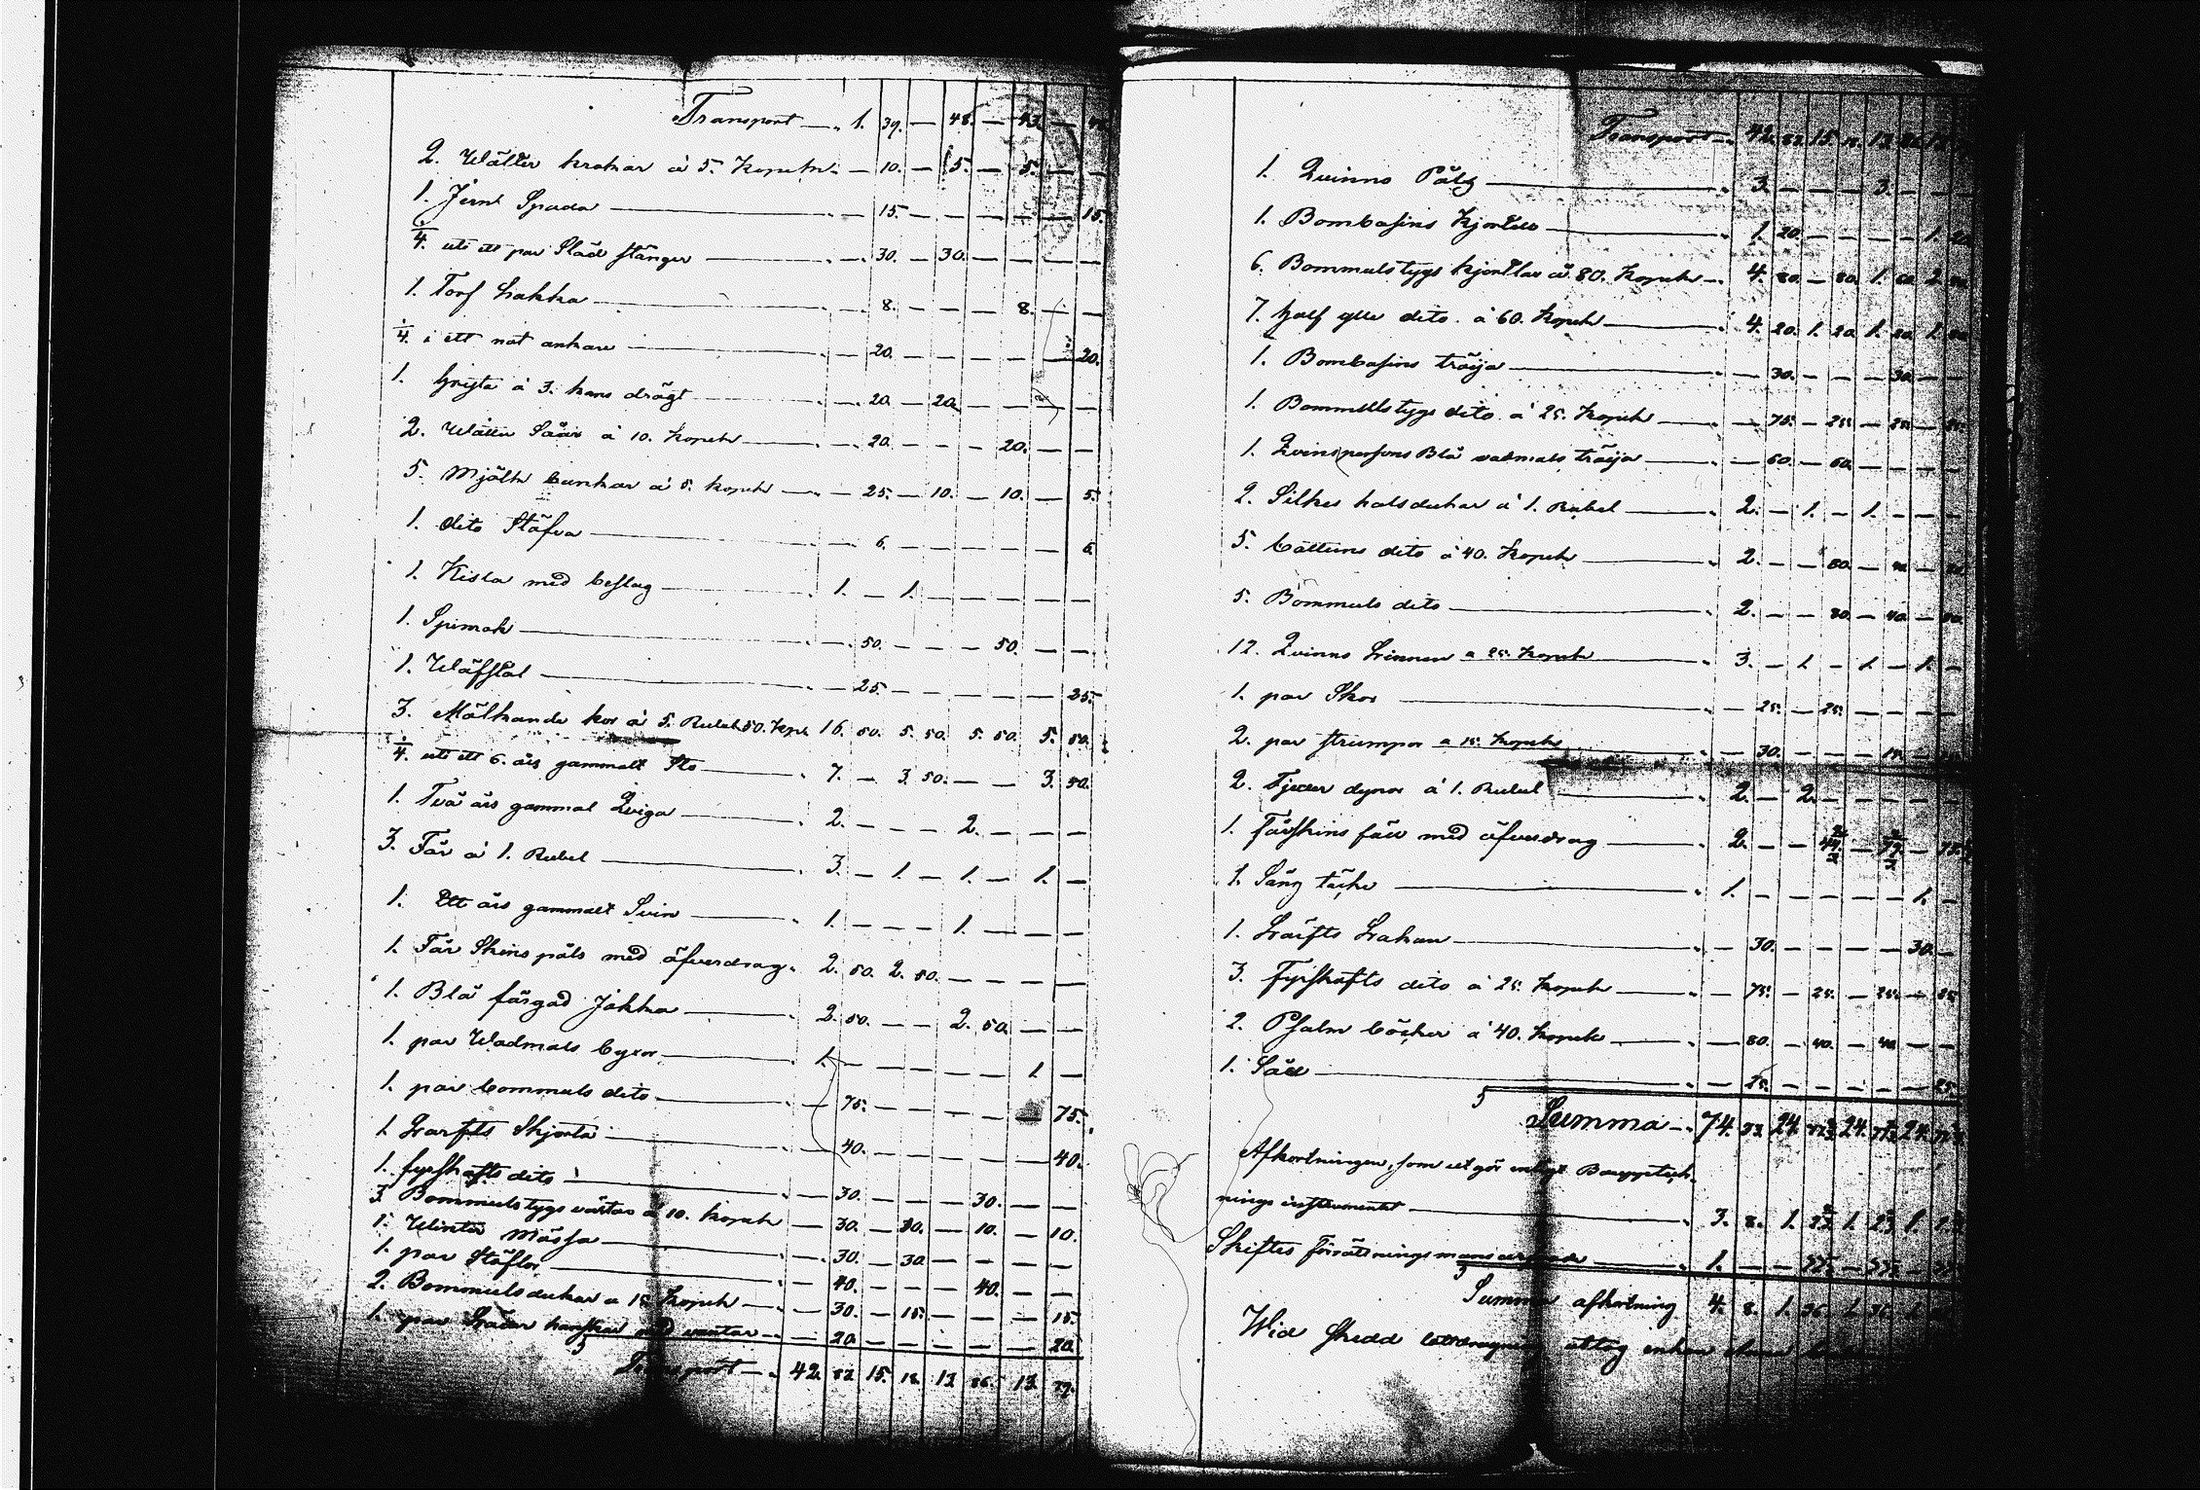 Transport — „ 1. 39. — 48. — 43. —
2. Wätter krokar á 5. Kopek — 10. — 5. — 5. — —
1. Jernt Spada — „ — 15. — — — — — 15.
1/4. uti ett par Släd stänger — „ — 30. — 30. — — — —
1. Torf hakka — „ — 8. — — — 8. — —
1/4. i ett not ankare — „ — 20. — — — — — 20.
1. Gryta á 3. kans drägt — „ — 20. — 20. — — — —
2. Wätter Såar á 10. Kopek — „ — 20. — — — 20. — —
5. Mjölk bunkar á 5. kopek — „ — 25. — 10. — 10. — 5.
1. dito Stäfva — „ — 6. — — — — — 6.
1. Kista med beslag — „ 1. — 1. — — — — —
1. Spinrok — „ — 50. — — — 50. — —
1. Wäfstol — „ — 25. — — — — — 25.
3. Mölkande kor á 5. Rubel 50. Kopk 16. 50. 5. 50. 5. 50. 5. 50.
1/4. uti ett 6. års gammalt Sto — „ 7. — 3. 50. — — 3. 50.
1. Två års gammal Quiga — „ 2. — — — 2. — — —
3. Får á 1. Rubel — „ 3. — 1. — 1. — 1. —
1. Ett års gammalt Svin — „ 1. — — — 1. — — —
1. Får Skins päls med öfverdrag „ 2. 50. 2. 50. — — — —
1. Blå färgad Jakka — „ 2. 50. — — 2. 50. — —
1. par Wadmals byxor — „ 1. — — — — — 1. —
1. par bommuls dito — „ — 75. — — — — — 75.
1. Larfts Skjorta — „ — 40. — — — — — 40.
1. fyrskafts dito — „ — 30. — — — 30. — —
3. Bommulstygs västar á 10. kopek — — 30. — 10. — 10. — 10.
1. Winter Mössa — „ — 30. — 30. — — — —
1. par Stöflor — „ — 40. — — — 40. — —
2. Bommuls dukar a 15. Kopek — — 30. — 15. — — — 15.
1. par Läder hanskar med vantar — „ — 20. — — — — — 20.
Transport — „ 42. 82. 15. 18. 13. 86. 13. 77.
Transport — „ 42. 82. 15. 18. 13. 86. 13.
1. Quinno Pälz — „ 3. — — — 3. — — —
1. Bombasins Kjortel — „ 1. 20. — — — — 1. 20.
6. Bommulstygs kjortlar á 80. Kopek — „ 4. 80. — 80. 1. 60. 2. 40.
7. half ylle dito á 60. Kopek — „ 4. 20. 1. 20. 1. 20. 1. 80.
1. Bombasins tröija — „ — 30. — — — 30. — —
1. Bommulstygs dito á 25. Kopek — „ — 75. — 25. — 25. — 25.
1. Quinspersons Blå vadmals tröija — „ — 60. — 60. — — — —
2. Silkes halsdukar á 1. Rubel — „ 2. — 1. — 1. — — —
5. Cattuns dito á 40. Kopek — „ 2. — — 80. — 40. —
5. Bommuls dito — „ 2. — — 80. — 40. — 80.
12. Quinns Linnen a 25. Kopek — „ 3. — 1. — 1. — 1. —
1. par Skor — „ — 25. — 25. — — — —
2. par strumpor a 15. Kopek — „ — 30. — — — 15. —
2. Fjeder dynor á 1. Rubel — „ 2. — 2. — — — — —
1. Fårskins fäll med öfverdrag — „ 2. — —
1. Säng täcke — „ 1. — — — — — 1. —
1. Larfts Lakan — „ — 30. — — — — 30. —
3. Fyrskafts dito á 25. Kopek — „ — 75. — 25. — 25. — 25.
2. Psalm böcker á 40. Kopek — „ — 80. — 40. — 40. — —
1. Såll — „ — 25. — — — — — 25.
Summa — „ 74. 24. 24. 24.
Afkortningen, som utgör enligt Bouppteck-
nings instrumentet — „ 3. 8. 1. 1. 1.
Skiftes förrättningsmans arfvode — „ 1. — — — —
Summa afkortning 4. 8. 1. 36. 1. 36. 1.
Wid skedd lottdragning uttog enkan